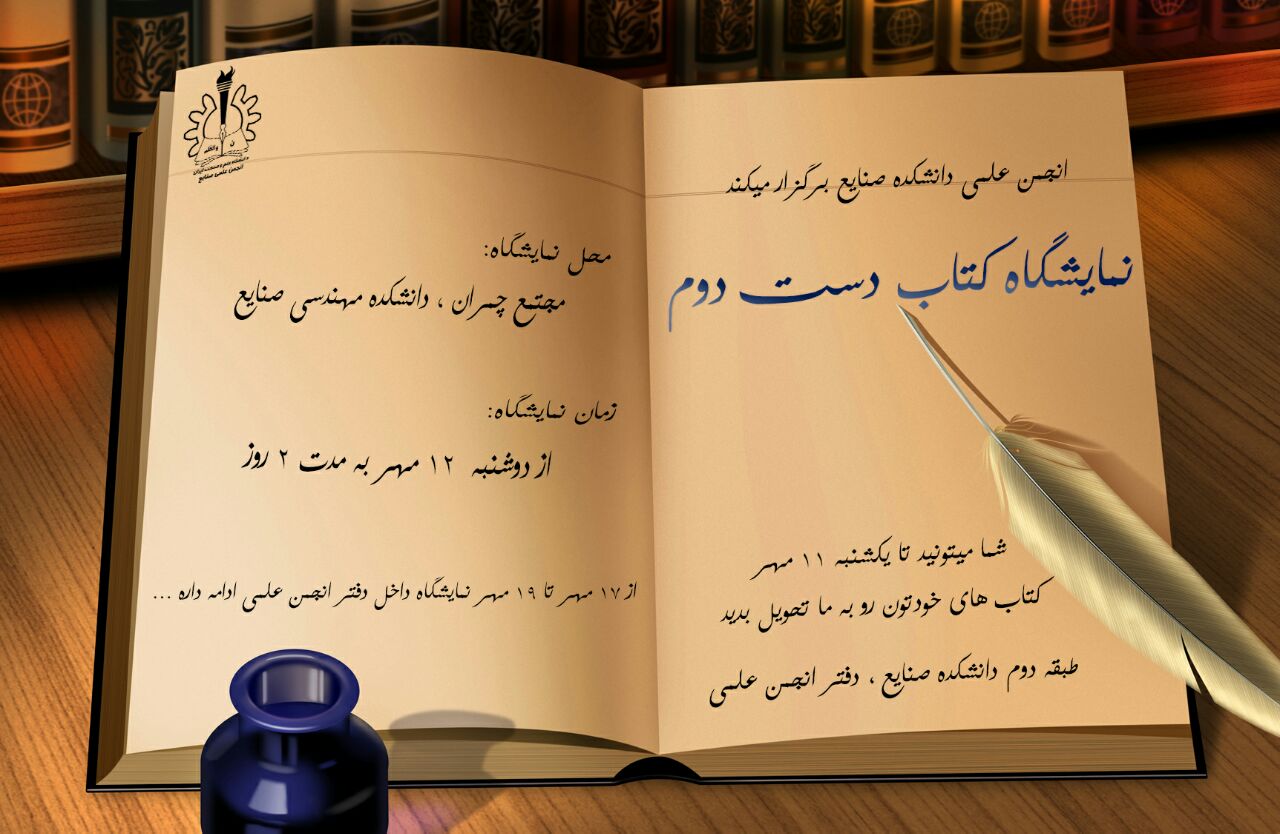 انجمن علمی دانشکده صنایع برگزار میکند
نمایشگاه کتاب دست دوم
شما میتونید تا یکشنبه ۱۱ مهر
کتاب های خودتون رو به ما تحویل بدید
طبقه دوم دانشکده صنایع ، دفتر انجمن علمی
والقلم
ن
دانشگاه علم و صنعت ایران
انجمن علمی صنایع
محل نمایشگاه:
مجتمع چمران ، دانشکده مهندسی صنایع
زمان نمایشگاه:
از دوشنبه ۱۲ مهر به مدت ۲ روز
از ۱۷ مهر تا ۱۹ مهر نمایشگاه داخل دفتر انجمن علمی ادامه داره ...